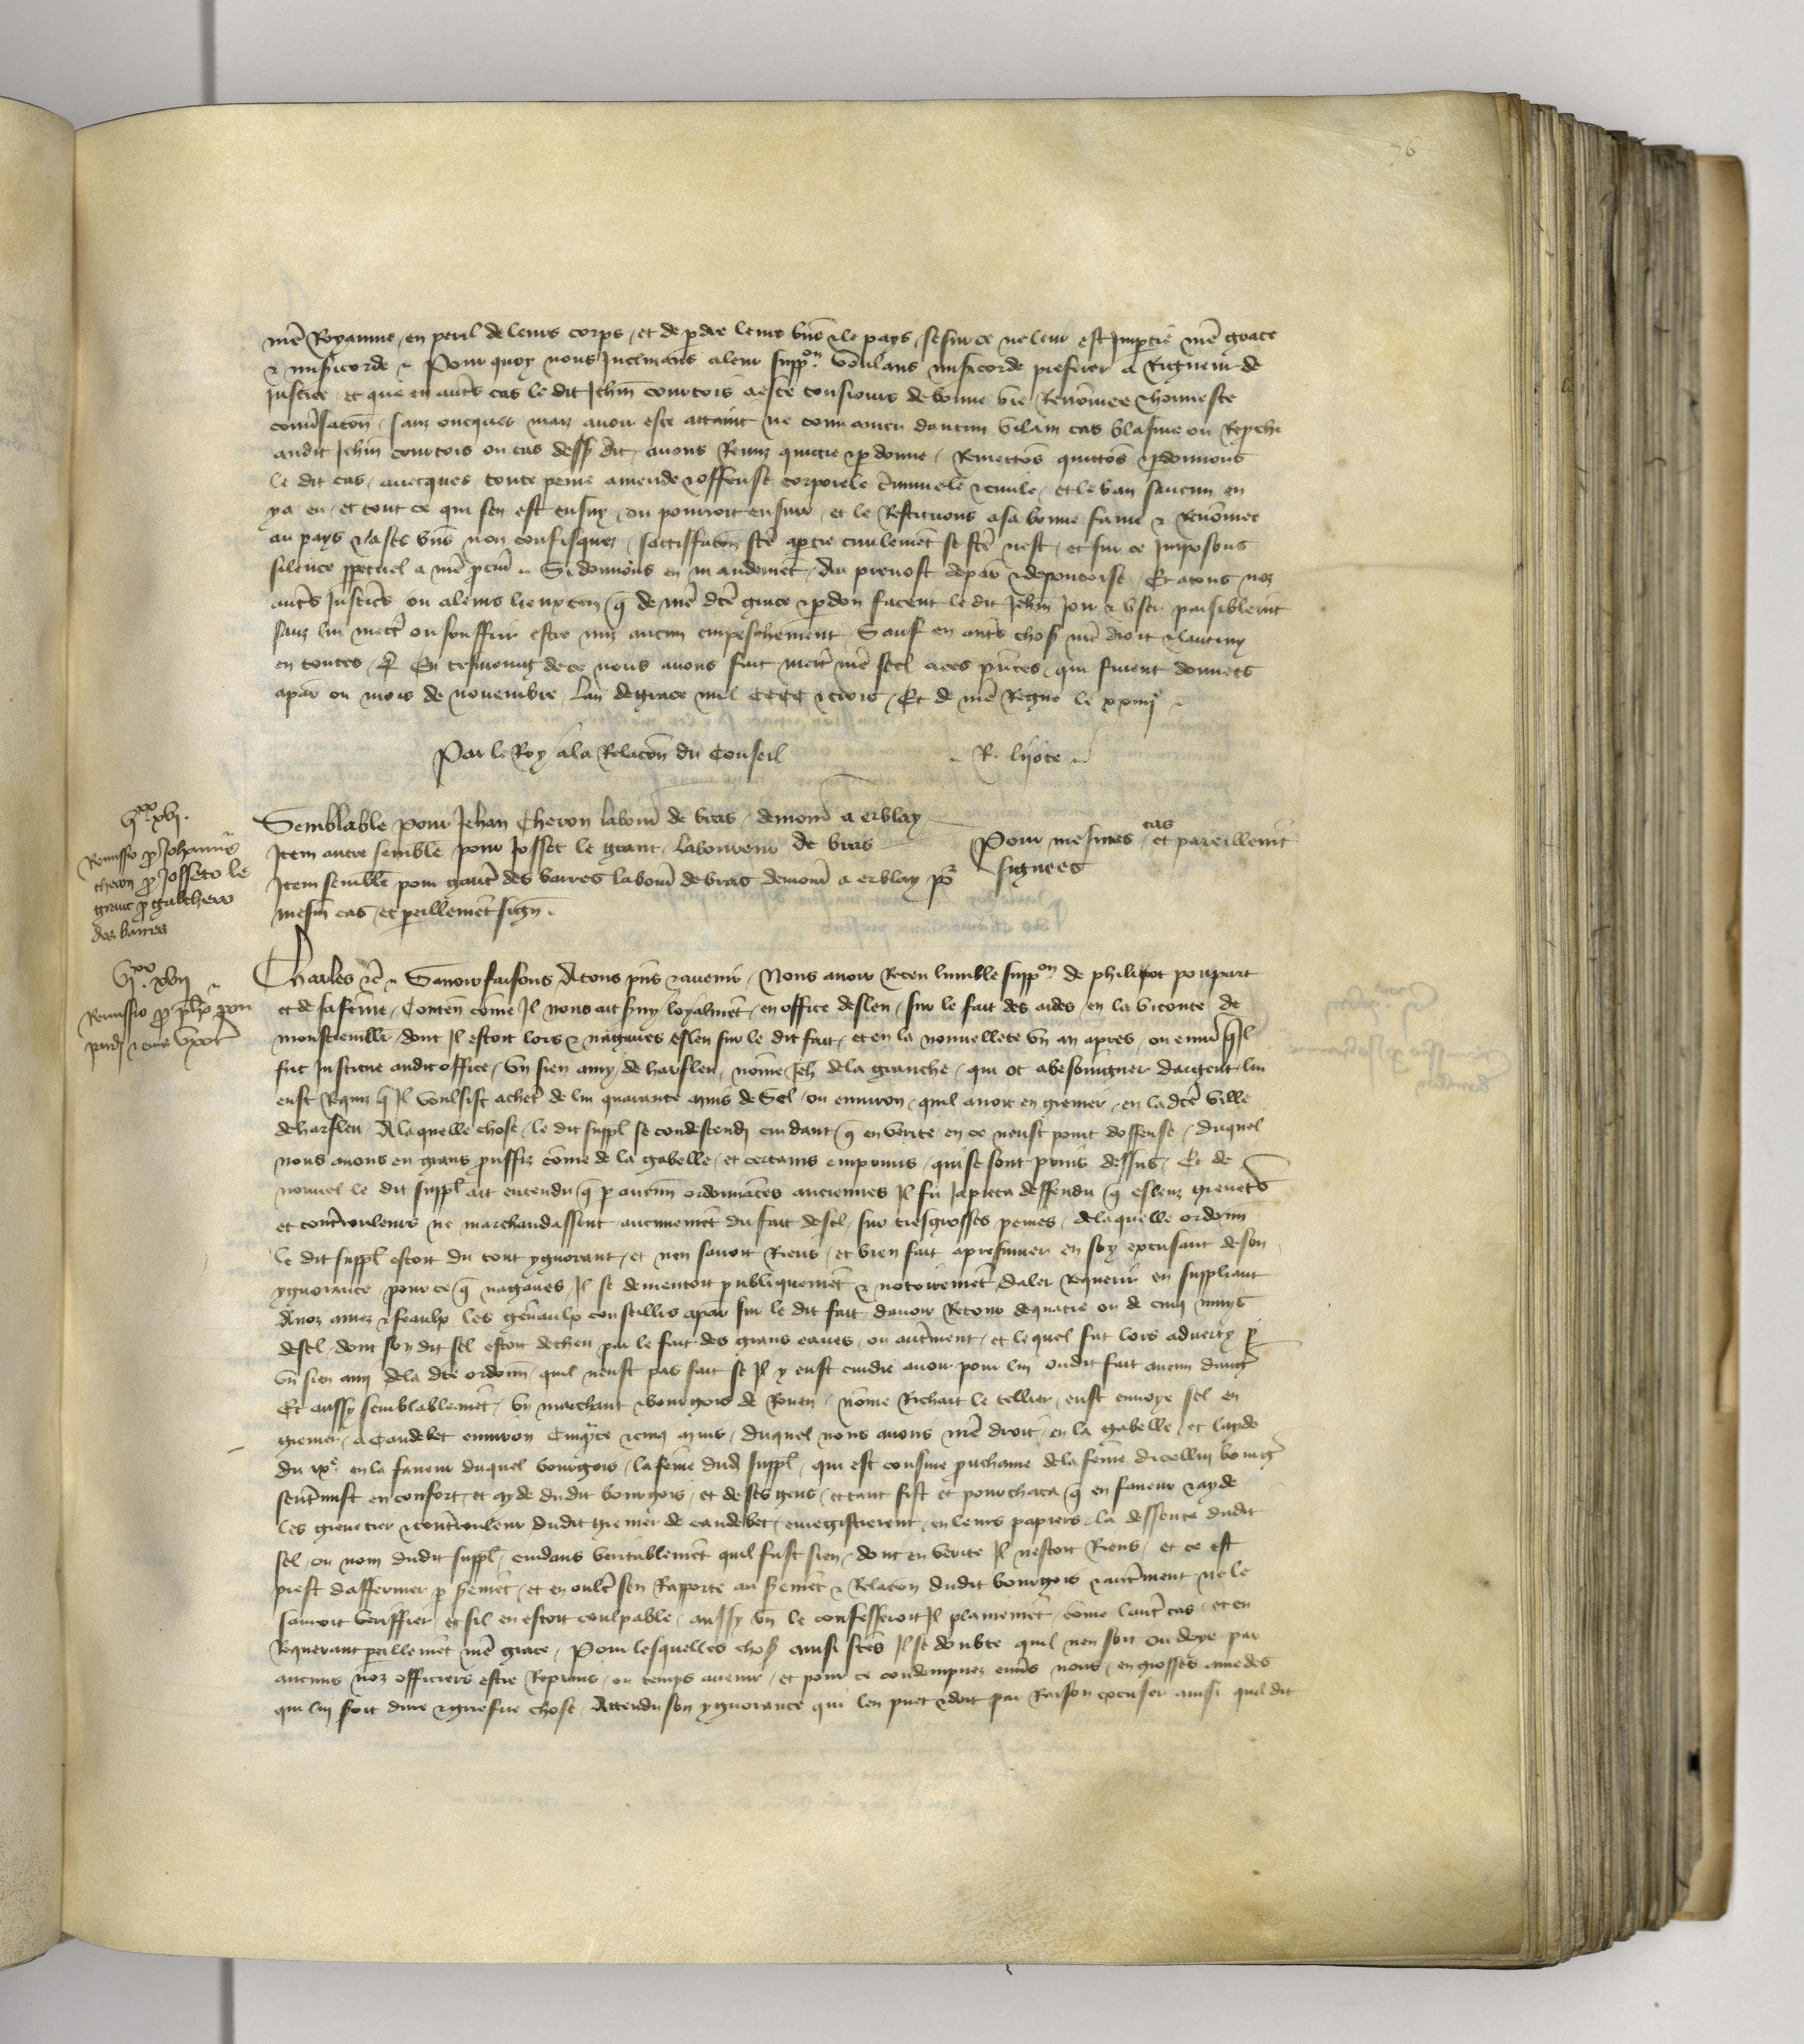 76
nr̄e Royaume en peril de leurs corps et de p̱dre leurs biēs & le pays se sur ce ne leur est Imp̱tie nr̄e grace
& mis̄icorde Pour quoy nous Inclinans a leur suppon voulans mis̄icorde preferer a Rigueur de
Justice et que en autˢ cas le dit Jehan courtois a este tousiours de bonne vie Renōmee & honneste
conūsacōn sanz oncques mais auoir este attaint ne conuaincu daucun vilain cas blasme ou Rep̱che
audit Jehan courtois ou cas dessˢ dit auons Remis quicte & p̱donne Remettōs quittōs & p̱donnons
le dit cas auecques toute peine amende & offense corporele c̄minuele & ciuile et le ban saucun en
y a eu et tout ce qui sen est ensuy ou pourroit ensuir et le Restituons a sa bonne fame & Renōmee
au pays & a ses biēs non confisquez satisfacōn fc̄e a p̱tie ciuilemēt se fc̄e nest et sur ce Imposons
silence p̱petuel a nr̄e p̱cur̄ Si donnons en mandemēt au preuost de par̄ & de pontoise Et a touˢ noz
autˢ Justiciˢ ou a leurs lieuxten̄ q̄ de nr̄e dc̄e grace & p̱don facent le dit Jehan Jouir & vser paisiblemt
sanz lui mettr̄ ou souffrir estre mis aucun empeschement Sauf en autˢ chosˢ nr̄e droit & lautruy
en toutes Et En tesmoing de ce nous auons fait mettr̄ nr̄e seel a ces pn̄tes qui furent donnees
a par̄ ou mois de nouembre lan de grace mil CCCC & trois Et de nr̄e Regne le xxiiije
Par le Roy a la Relacōn du Conseil R. lyote
vjxx xvj.
Remissio p̱ Johanne
cheron p̱ Josseto le
grant p̱ galthero
des barres
Semblable pour Jehan Cheron labour̄ de bras demour̄ a erblay
Item autre semblē pour Josset le grant laboureur de bras
Item semblē pour gautˢ des barres labour̄ de bras demour̄ a erblay po
mesm̄ cas et p̱eillemēt sign̄.
Pour mesmes cas et pareillemt
signees
vjxx xvij
Remissio p̱ ph̄o pou
part & eius vxor̄
Charles &c̄ Sauoir faisons A tous pn̄s & auenir Nous auoir Receu lumble suppon de philipot poupart
et de sa fēme Conten̄ cōme Il nous ait s̱uy loyalmēt en office desleu sur le fait des aides en la viconte de
monstieruillr̄ dont Il estoit lors & nagaires esleu sur le dit fait et en la nouuellete vn an apres ou enuir̄ q̄ Il
fut Institue audit office vn sien amy de harfleu nōme Jeh̄ de la granche qui ot abesoingner dargent lui
eust Requis q̄ Il voulsist achetˢ de lui quarante muis de Sel ou enuiron quil auoit en grenier en la dc̄e ville
de harfleu A laquelle chose le dit suppl̄ se condescendi cuidant q̄ en verite en ce neust point doffense duquel
nous auons eu grans prouffiz cōme de la gabelle et certains emprunts qui se sont prins dessus Et de
nouuel le dit suppl̄ ait entendu q̄ p̱ aucun̄ ordonnāces anciennes Il fu Ja pieca deffendu q̄ esleuz greneters
et contrerouleurs ne marchandassent aucunemēt du fait de sel sur tresgrosses peines de laquelle ordonn
le dit suppl̄ estoit du tout ygnorant et nen sauoit Riens et bien fait a presumer en soy excusant de son
ygnorance pour ce q̄ nagaires Il se dementoit publiquemēt & notoiremēt daler Requerir en suppliant
A noz amez & feaulx les gen̄aulx conseilliˢ a par̄ sur le dit fait dauoir Retour de quatre ou de cinq muys
de sel dont son dit sel estoit decheu par le fait des grans eaues ou autr̄ment et lequel fut lors aduerty p̱
vn sien amy de la dc̄e ordonn̄ quil neust pas fait se Il y eust cuidie auoir pour lui oudit fait aucun dangˢ
Et aussy semblablemēt vn marchant & bourgois de Rouen nōme Richart le tellier eust enuoye sel en
grenier a Caudebet enuiron Cinq̄te & cinq muis duquel nous auons nr̄e droit en la gabelle et layde
du xxe en la faueur duquel bourgois la fēme dud̄ suppl̄ qui est cousine prouchaine de la fēme dicellui bourgˢ
sentr̄mist en confort et ayde dudit bourgois et de ses gens et tant fist et pourchaca q̄ en faueur & ayde
les grenetier & contrerouleur dudit grenier de caudebet enregistrerent en leurs papiers la dessente dudit
sel ou nom dudit suppl̄ cuidans veritablemēt quil fust sien dont en verite Il nestoit Riens et ce est
prest daffermer p̱ s̱emēt et en oultr̄ sen Rapporte au s̱emēt & Relacōn dudit bourgois & autr̄ment ne le
sauroit veriffier et sil en estoit coulpable aussy bn̄ le confesseroit Il plainemēt cōme lautr̄ cas et en
Requerant p̱eillemēt nr̄e grace Pour lesquelles chosˢ ainsi fc̄es Il se doubte quil nen soit ou doye par
aucuns noz officiers estre Reprins ou temps auenir et pour ce condempnez enuˢ nous en grosses amēdes
qui lui soit dure & griefue chose Attendu son ygnorance qui len puet & doit par Raison excuser ainsi quil dit